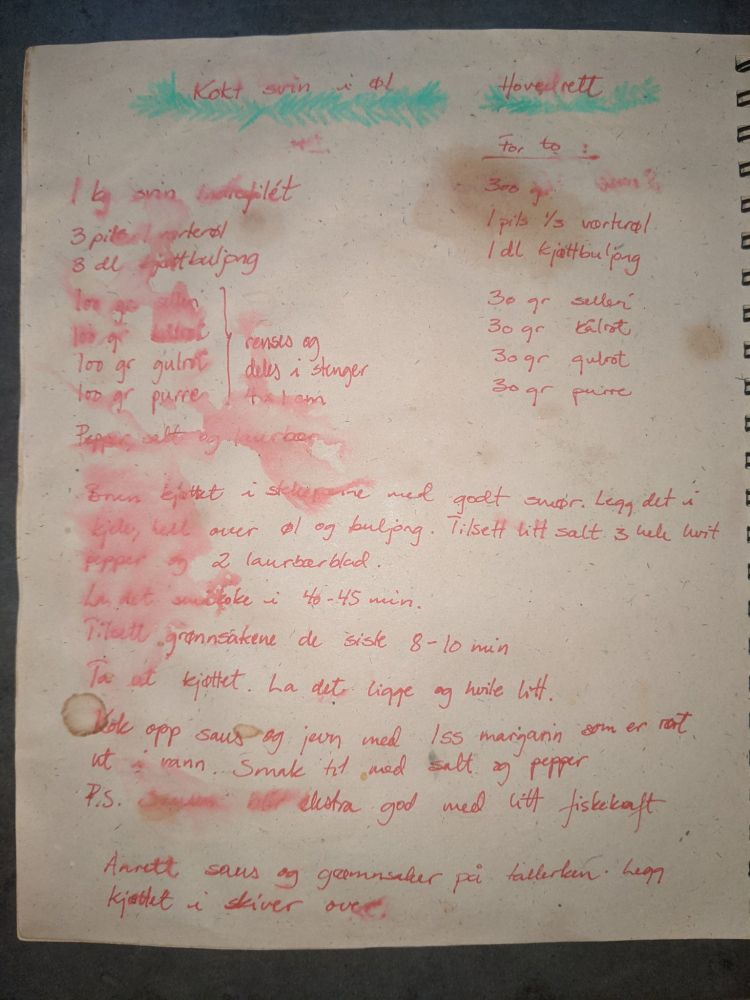 Kokt svin i øl
Hovedrett
For to :
1 kg svin indrefilét
300 gr
3 pils 1 vørterøl
1 pils 1/3 vørterøl
3 dl kjøttbuljong
1 dl kjøttbuljong
100 gr selleri
30 gr selleri
100 gr kålrot
30 gr kålrot
100 gr gulrot
30 gr gulrot
100 gr purre
30 gr purre
renses og
deles i stenger
4 x 1 cm
Pepper, salt og laurbær
Brun kjøttet i med godt smør. Legg det i
kjele, hell over øl og buljong. Tilsett litt salt 3 hele hvit
pepper og 2 laurbærblad.
La det småkoke i 40-45 min.
Tilsett grønnsakene de siste 8-10 min
Ta ut kjøttet. La det ligge og hvile litt.
Kok opp saus og jevn med 1ss margarin som er rørt
ut i vann. Smak til med salt og pepper
P.S. Sausen blir ekstra god med litt fiskekraft
Anrett saus og grønnsaker på tallerken. Legg
kjøttet i skiver over.